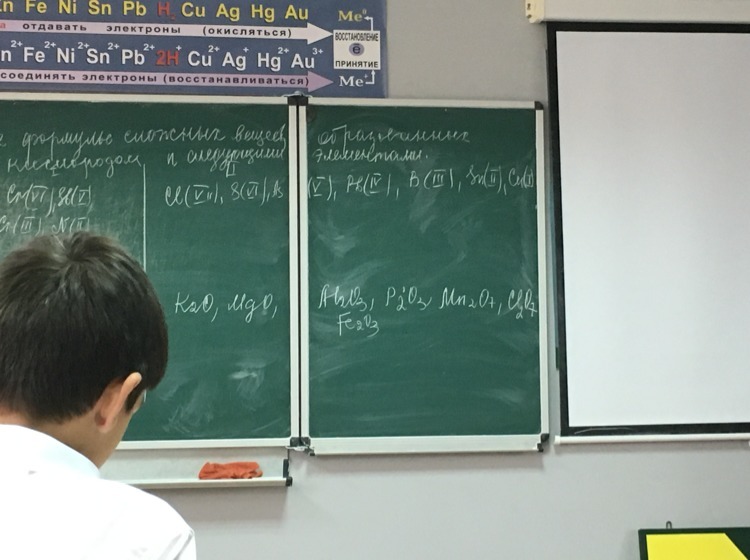 n Fe Ni Sn Pb H₂ Cu Ag Hg Au
а отдавать электроны (окисляться)
Me⁰
ВОССТАНОВЛЕНИЕ
e
ПРИНЯТИЕ
n²⁺Fe²⁺Ni²⁺Sn²⁺Pb²⁺2H⁺ Cu²⁺Ag⁺Hg²⁺Au³⁺
соединять электроны (восстанавливаться)
Me⁺
формулы сложных веществ образованных
кислородом и следующими элементами.
Cr(VI), Cl(VII), S(VI), (V), Pb(IV), B(III), Sn(II), Cu(I)
Cr(III), N(II)
K2O, MgO, Al2O3, P2O3, Mn2O7, Cl2O7
Fe2O3